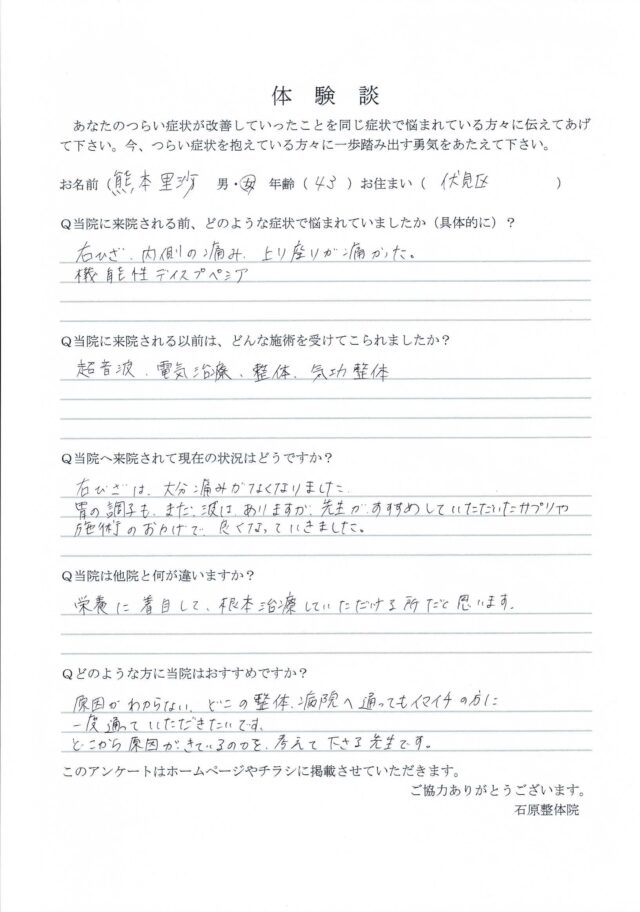 体 験 談
あなたのつらい症状が改善していったことを同じ症状で悩まれている方々に伝えてあげ
て下さい。今、つらい症状を抱えている方々に一歩踏み出す勇気をあたえて下さい。
お名前 (熊本里沙 男・女 年齢 ( 43 ) お住まい ( 伏見区 )
Q当院に来院される前、どのような症状で悩まれていましたか（具体的に）？
右ひざ、内側の痛み、上り座りが痛かった。
機能性ディスプペシア
Q当院に来院される以前は、どんな施術を受けてこられましたか？
超音波、電気治療、整体、気功整体
Q当院へ来院されて現在の状況はどうですか？
右ひざは、大分痛みがなくなりました。
胃の調子も、まだ波はありますが、先生が、すすめしていただいたサプリや
施術のおかげで、良くなっていきました。
Q当院は他院と何が違いますか？
栄養に着目して、根本治療していただける所だと思います。
Qどのような方に当院はおすすめですか？
原因がわからない、どこの整体、病院へ通ってもイマイチの方に
一度通っていただきたいです。
どこから原因がきているのかを、考えて下さる先生です。
このアンケートはホームページやチラシに掲載させていただきます。
ご協力ありがとうございます。
石原整体院